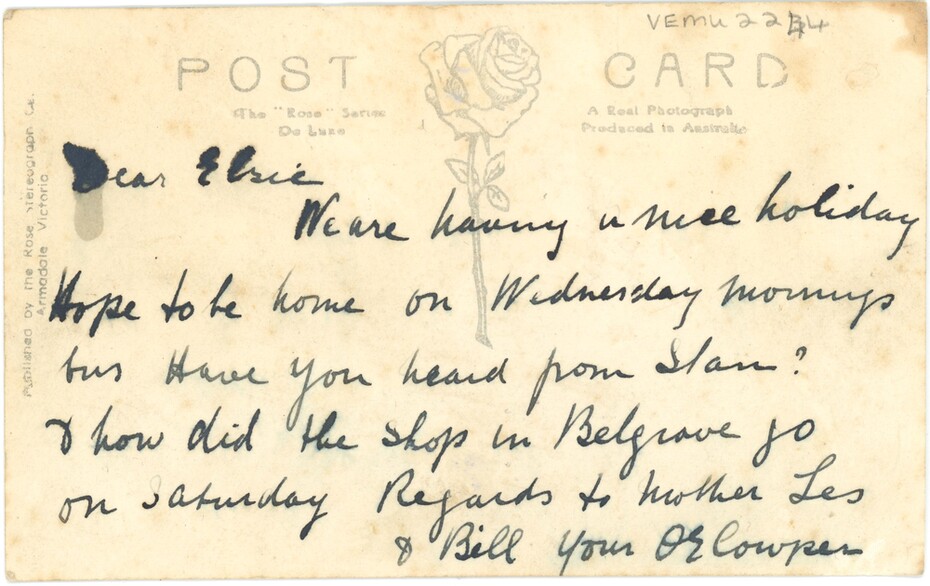 VEMU 2234
POST CARD
The "Rose" Series
De Luxe
A Real Photograph
Produced in Australia
Published by the Rose Stereograph Co.
Armadale Victoria.
Dear Elsie
We are having a nice holiday
Hope to be home on Wednesday mornings
bus Have you heard from Stan?
& how did the shop in Belgrave go
on Saturday Regards to Mother Les
& Bill Your Cowper